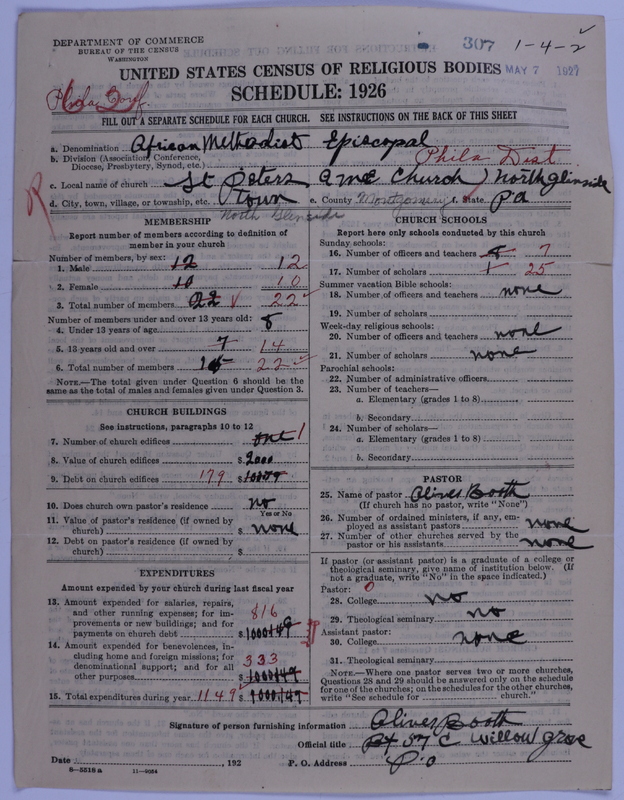 DEPARTMENT OF COMMERCE
BUREAU OF THE CENSUS
WASHINGTON
307
1-4-2
UNITED STATES CENSUS OF RELIGIOUS BODIES
MAY 7 1927
SCHEDULE: 1926
Phila Conf
FILL OUT A SEPARATE SCHEDULE FOR EACH CHURCH. SEE INSTRUCTIONS ON THE BACK OF THIS SHEET
a. Denomination African Methodist Episcopal
b. Division (Association, Conference, Diocese, Presbytery, Synod, etc.) Phila Dist
c. Local name of church St Peters A M E Church) North glenside
d. City, town, village, or township, etc. Town e. County Montgomery f. State Pa
North Glenside
MEMBERSHIP
Report number of members according to definition of
member in your church
Number of members, by sex:
1. Male 12 12
2. Female 10 10
3. Total number of members 22 22
Number of members under and over 13 years old:
4. Under 13 years of age 8
5. 13 years old and over 7 14
6. Total number of members 15 22
NOTE.—The total given under Question 6 should be the
same as the total of males and females given under Question 3.
CHURCH BUILDINGS
See instructions, paragraphs 10 to 12
7. Number of church edifices one 1
8. Value of church edifices $ 2000
9. Debt on church edifices 179 $
10. Does church own pastor's residence no
Yes or No
11. Value of pastor's residence (if owned by
church) $ none
12. Debt on pastor's residence (if owned by
church) $
EXPENDITURES
Amount expended by your church during last fiscal year
13. Amount expended for salaries, repairs,
and other running expenses; for im-
provements or new buildings; and for
payments on church debt 816 $ 1000149
14. Amount expended for benevolences, in-
cluding home and foreign missions; for
denominational support; and for all
other purposes 333 $ 1000149
15. Total expenditures during year 1149 $ 1000.149
CHURCH SCHOOLS
Report here only schools conducted by this church
Sunday schools:
16. Number of officers and teachers 7
17. Number of scholars 25
Summer vacation Bible schools:
18. Number of officers and teachers none
19. Number of scholars
Week-day religious schools:
20. Number of officers and teachers none
21. Number of scholars none
Parochial schools:
22. Number of administrative officers
23. Number of teachers—
a. Elementary (grades 1 to 8)
b. Secondary
24. Number of scholars—
a. Elementary (grades 1 to 8)
b. Secondary
PASTOR
25. Name of pastor Oliver Booth
(If church has no pastor, write "None")
26. Number of ordained ministers, if any, em-
ployed as assistant pastors none
27. Number of other churches served by the
pastor or his assistants none
If pastor (or assistant pastor) is a graduate of a college or
theological seminary, give name of institution below. (If
not a graduate, write "No" in the space indicated.)
Pastor: 0
28. College no
29. Theological seminary no
Assistant pastor:
30. College none
31. Theological seminary
NOTE.—Where one pastor serves two or more churches,
Questions 28 and 29 should be answered only on the schedule
for one of the churches; on the schedules for the other churches,
write "See schedule for church."
Signature of person furnishing information Oliver Booth
Official title Willow Grove
Date , 192 P. O. Address
8—5518 a 11—9084